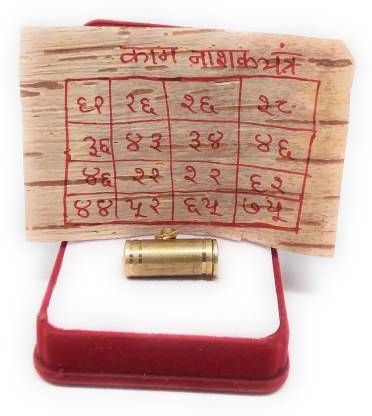 काम नाशक यंत्र
६१ १६ २६ २८
३६ ४३ ३४ ४६
४६ २१ २२ ६३
४४ ५२ ६५ ७५